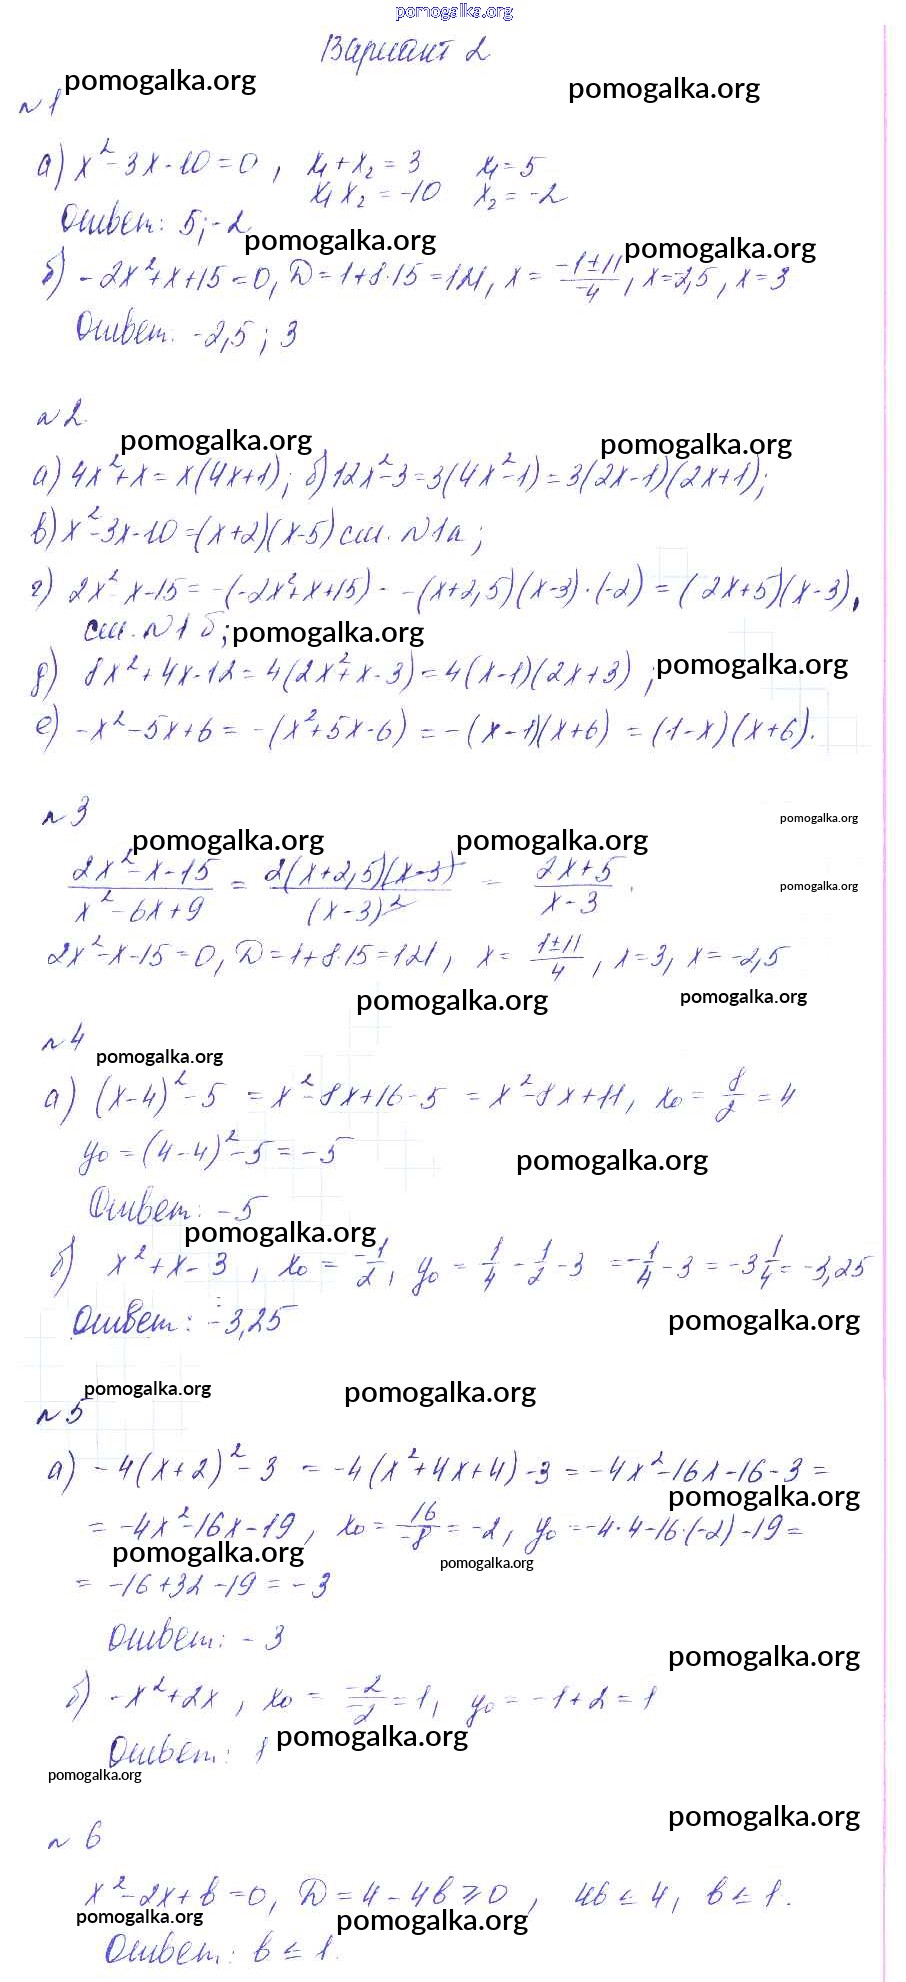 pomogalka.org
Вариант 2
pomogalka.org pomogalka.org
№1
а) x² - 3x - 10 = 0, x₁ + x₂ = 3 x₁ = 5
x₁ x₂ = -10 x₂ = -2
Ответ: 5; -2
pomogalka.org pomogalka.org
б) -2x² + x + 15 = 0, D = 1 + 8·15 = 121, x = (-1 ± 11)/(-4), x = -2,5, x = 3
Ответ: -2,5; 3
№2.
pomogalka.org pomogalka.org
а) 4x² + x = x(4x + 1); б) 12x² - 3 = 3(4x² - 1) = 3(2x - 1)(2x + 1);
в) x² - 3x - 10 = (x + 2)(x - 5) см. №1а;
г) 2x² - x - 15 = -(-2x² + x + 15) - -(x + 2,5)(x - 3)·(-2) = (2x + 5)(x - 3),
см. №1б; pomogalka.org
д) 8x² + 4x - 12 = 4(2x² + x - 3) = 4(x - 1)(2x + 3); pomogalka.org
е) -x² - 5x + 6 = -(x² + 5x - 6) = -(x - 1)(x + 6) = (1 - x)(x + 6).
№3
pomogalka.org
pomogalka.org pomogalka.org
(2x² - x - 15)/(x² - 6x + 9) = 2(x + 2,5)(x - 3)/(x - 3)² = (2x + 5)/(x - 3).
pomogalka.org
2x² - x - 15 = 0, D = 1 + 8·15 = 121, x = (1 ± 11)/4, x = 3, x = -2,5
pomogalka.org pomogalka.org
№4
pomogalka.org
а) (x - 4)² - 5 = x² - 8x + 16 - 5 = x² - 8x + 11, x₀ = 8/2 = 4
y₀ = (4 - 4)² - 5 = -5
pomogalka.org
Ответ: -5
pomogalka.org
б) x² + x - 3, x₀ = -1/2, y₀ = 1/4 - 1/2 - 3 = -1/4 - 3 = -3 1/4 = -3,25
Ответ: -3,25
pomogalka.org
pomogalka.org pomogalka.org
№5
а) -4(x + 2)² - 3 = -4(x² + 4x + 4) - 3 = -4x² - 16x - 16 - 3 =
pomogalka.org
= -4x² - 16x - 19, x₀ = 16/(-8) = -2, y₀ = -4·4 - 16·(-2) - 19 =
pomogalka.org pomogalka.org
= -16 + 32 - 19 = -3
Ответ: -3
pomogalka.org
б) -x² + 2x, x₀ = (-2)/(-2) = 1, y₀ = -1 + 2 = 1
Ответ: 1 pomogalka.org
pomogalka.org
pomogalka.org
№6
x² - 2x + b = 0, D = 4 - 4b ≥ 0, 4b ≤ 4, b ≤ 1.
pomogalka.org pomogalka.org
Ответ: b ≤ 1.